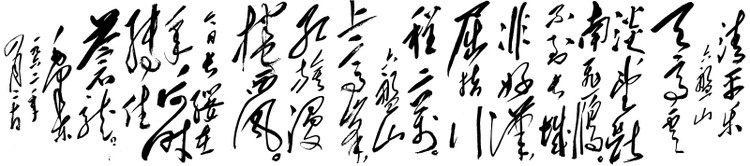 清平乐
六盘山
天高云
淡望断
南飞雁。
不到长城
非好漢
屈指行
程二萬。
六盘山
上高峰
红旗漫
捲西风。
今日长缨在
手何时
缚住
苍龙
毛泽东
一九六一年
九月